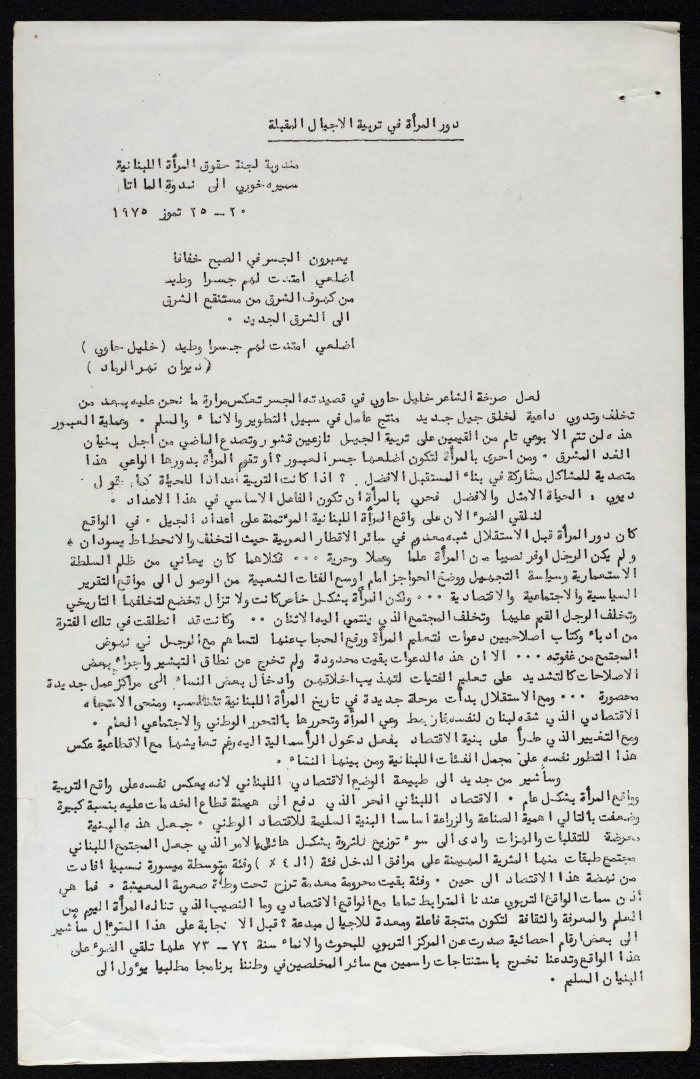 دور المرأة في تربية الاجيال المقبلة
مندوبة لجنة حقوق المرأة اللبنانية
سميره خوري الى ندوة الما اتا
٢٠ – ٢٥ تموز ١٩٧٥
يعبرون الجسر في الصبح خفافا
اضلعي امتدت لهم جسرا وطيد
من كهوف الشرق من مستنقع الشرق
الى الشرق الجديد ٠
اضلعي امتدت لهم جسرا وطيد (خليل حاوي)
(ديوان نهر الرماد)
لعل صرخة الشاعر خليل حاوي في قصيدته الجسر تعكس مرارة ما نحن عليه بعد من
تخلف وتدوي داعية لخلق جيل جديد منتج عامل في سبيل التطوير والانماء والسلم ٠ وعملية العبور
هذه لن تتم الا بوعي تام من القيمين على تربية الجيل نازعين قشور وتصدع الماضي من اجل بنيان
الغد المشرق ٠ ومن احرى بالمرأة لتكون اضلعها جسر العبور؟ أو تقوم المرأة بدورها الواعي هذا
متصدية للمشاكل مشاركة في بناء المستقبل الافضل ؟ اذا كانت التربية اعدادا للحياة كما يقول
ديوي : الحياة الامثل والافضل فحري بالمرأة ان تكون الفاعل الاساسي في هذا الاعداد ٠
لنلقي الضوء الان على واقع المرأة اللبنانية الموءتمنة على اعداد الجيل ٠ في الواقع
كان دور المرأة قبل الاستقلال شبه معدوم في سائر الاقطار العربية حيث التخلف والانحطاط يسودان ٠
ولم يكن الرجل اوفر نصيبا من المرأة علما وعملا وحرية ٠٠٠ فكلاهما كان يعاني من ظلم السلطة
الاستعمارية وسياسة التجهيل ووضع الحواجز امام اوسع الفئات الشعبية من الوصول الى مواقع التقرير
السياسية والاجتماعية والاقتصادية ٠٠٠ ولكن المرأة بشكل خاص كانت ولا تزال تخضع لتخلفها التاريخي
وتخلف الرجل القيم عليها وتخلف المجتمع الذي ينتمي اليه الاثنان ٠٠ وكانت قد انطلقت في تلك الفترة
من ادباء وكتاب اصلاحيين دعوات لتعليم المرأة ورفع الحجاب عنها لتساهم مع الرجل في نهوض
المجتمع من غفوته ٠٠٠ الا ان هذه الدعوات بقيت محدودة ولم تخرج عن نطاق التبشير واجراء بعض
الاصلاحات كالتشديد على تعليم الفتيات لتهذيب اخلاقهن وادخال بعض النساء الى مراكز عمل جديدة
محصورة ٠٠٠ ومع الاستقلال بدأت مرحلة جديدة في تأريخ المرأة اللبنانية تتناسب ومنحى الاتجاه
الاقتصادي الذي شقه لبنان لنفسه فارتبط وعي المرأة وتحررها بالتحرر الوطني والاجتماعي العام ٠
ومع التغيير الذي طرأ على بنية الاقتصاد بفعل دخول الرأسمالية اليه رغم تعايشها مع الاقطاعية عكس
هذا التطور نفسه على مجمل الفئات اللبنانية ومن بينها النساء ٠
وسأشير من جديد الى طبيعة الوضع الاقتصادي اللبناني لانه يعكس نفسه على واقع التربية
وواقع المرأة بشكل عام ٠ الاقتصاد اللبناني الحر الذي دفع الى هيمنة قطاع الخدمات عليه بنسبة كبيرة
وضعفت بالتالي اهمية الصناعة والزراعة اساسا البنية السليمة للاقتصاد الوطني ٠ جعل هذه البنية
معرضة للتقلبات والهزات وادى الى سوء توزيع للثروة بشكل هائل الامر الذي جعل المجتمع اللبناني
مجتمع طبقات منها المثرية المهيمنة على مرافق الدخل فئة (ال ٤ ٪) وفئة متوسطة ميسورة نسبيا افادت
من نهضة هذا الاقتصاد الى حين ٠ وفئة بقيت محرومة معدمة ترزح تحت وطأة صعوبة المعيشة ٠ فما هي
اذن سمات الواقع التربوي عندنا المترابط تماما مع الواقع الاقتصادي وما النصيب الذي تناله المرأة اليوم من
العلم والمعرفة والثقافة لتكون منتجة فاعلة ومعدة للاجيال مبدعة ؟ قبل الاجابة على هذا السوءال سأشير
الى بعض ارقام احصائية صدرت عن المركز التربوي للبحوث والانماء سنة ٧٢ – ٧٣ علها تلقي الضوء على
هذا الواقع وتدعنا نخرج باستنتاجات راسمين مع سائر المخلصين في وطننا برنامجا مطلبيا يوءول الى
البنيان السليم ٠